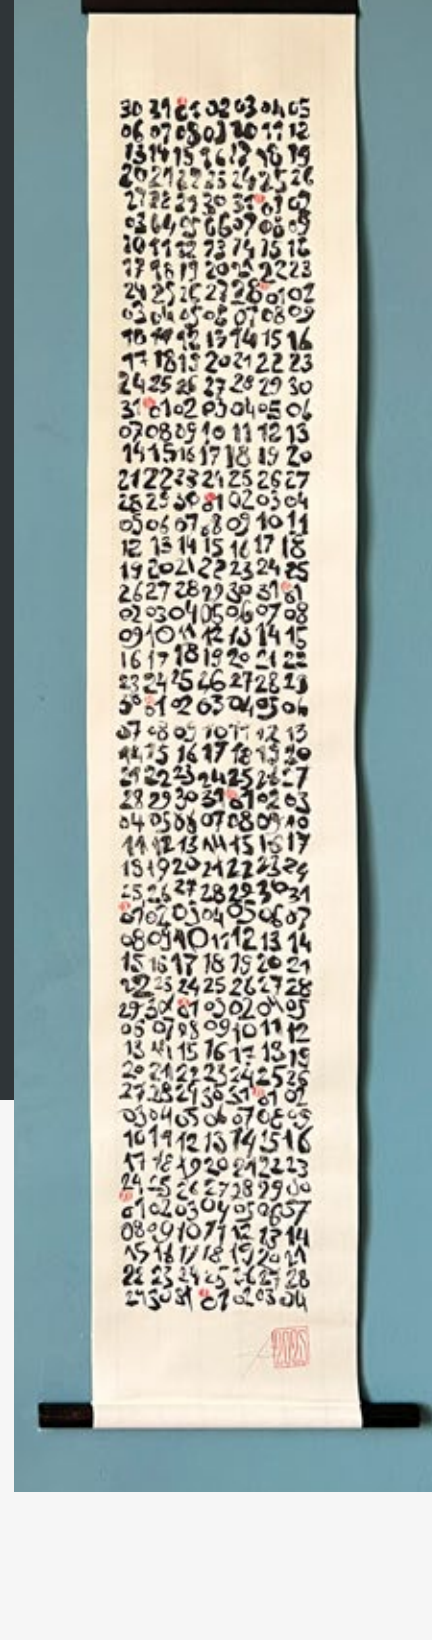 30 31 01 02 03 04 05
06 07 08 09 10 11 12
13 14 15 16 17 18 19
20 21 22 23 24 25 26
27 28 29 30 31 01 02
03 04 05 06 07 08 09
10 11 12 13 14 15 16
17 18 19 20 21 22 23
24 25 26 27 28 01 02
03 04 05 06 07 08 09
10 11 12 13 14 15 16
17 18 19 20 21 22 23
24 25 26 27 28 29 30
31 01 02 03 04 05 06
07 08 09 10 11 12 13
14 15 16 17 18 19 20
21 22 23 24 25 26 27
28 29 30 01 02 03 04
05 06 07 08 09 10 11
12 13 14 15 16 17 18
19 20 21 22 23 24 25
26 27 28 29 30 31 01
02 03 04 05 06 07 08
09 10 11 12 13 14 15
16 17 18 19 20 21 22
23 24 25 26 27 28 29
30 01 02 03 04 05 06
07 08 09 10 11 12 13
14 15 16 17 18 19 20
21 22 23 24 25 26 27
28 29 30 31 01 02 03
04 05 06 07 08 09 10
11 12 13 14 15 16 17
18 19 20 21 22 23 24
25 26 27 28 29 30 31
01 02 03 04 05 06 07
08 09 10 11 12 13 14
15 16 17 18 19 20 21
22 23 24 25 26 27 28
29 30 01 02 03 04 05
06 07 08 09 10 11 12
13 14 15 16 17 18 19
20 21 22 23 24 25 26
27 28 29 30 31 01 02
03 04 05 06 07 08 09
10 11 12 13 14 15 16
17 18 19 20 21 22 23
24 25 26 27 28 29 30
01 02 03 04 05 06 07
08 09 10 11 12 13 14
15 16 17 18 19 20 21
22 23 24 25 26 27 28
29 30 31 01 02 03 04